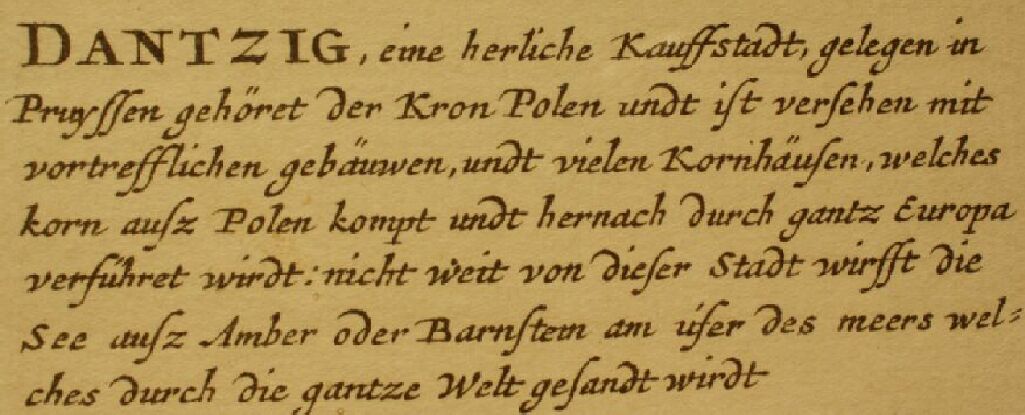 DANTZIG, eine herliche Kauffstadt, gelegen in
Pruyſſen gehöret der Kron Polen undt iſt verſehen mit
vortrefflichen gebäuwen, undt vielen Kornhäuſen, welches
korn auſz Polen kompt undt hernach durch gantz Europa
verführet wirdt: nicht weit von dieſer Stadt wirfft die
See auſz Amber oder Barnſtein am üfer des meers wel=
ches durch die gantze Welt geſandt wirdt